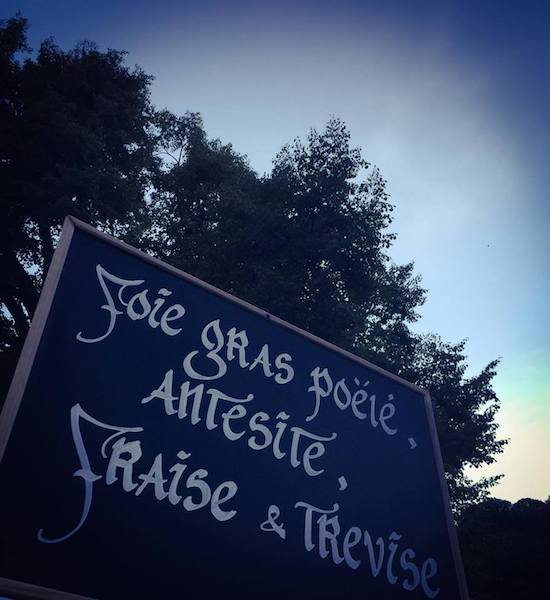 Foie gras poëlé,
Antésite,
Fraise & Trévise